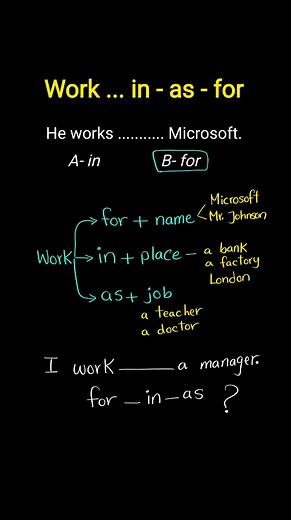 Work ... in - as - for
He works ........... Microsoft.
A- in B- for
Microsoft
for + name Mr. Johnson
Work in + place - a bank
a factory
London
as + job
a teacher
a doctor
I work ______ a manager.
for _ in _ as ?